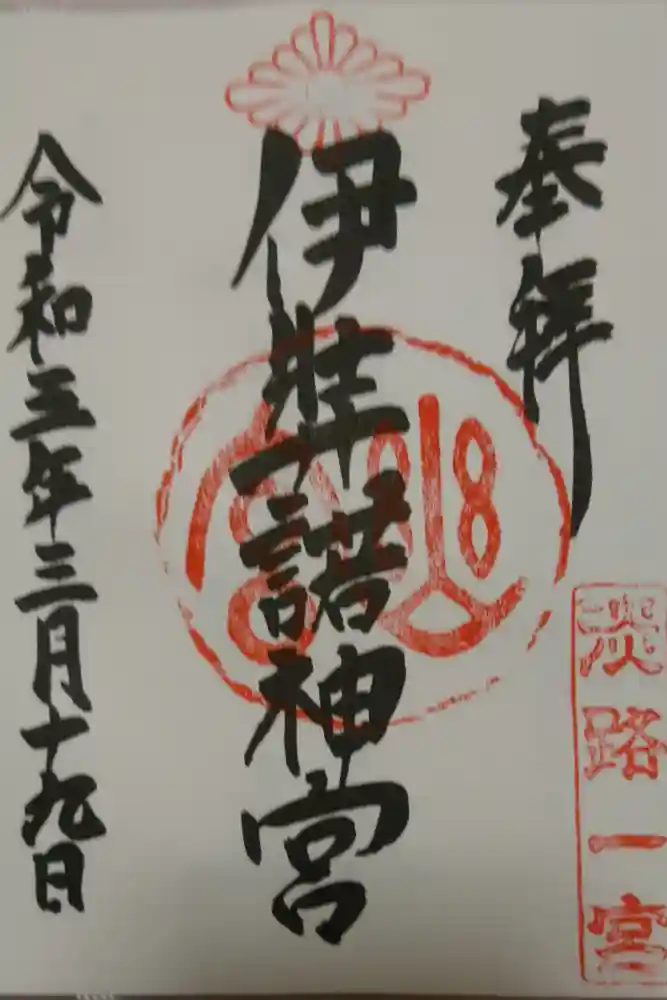 奉拝
淡路一宮
伊弉諾神宮
令和五年三月十九日